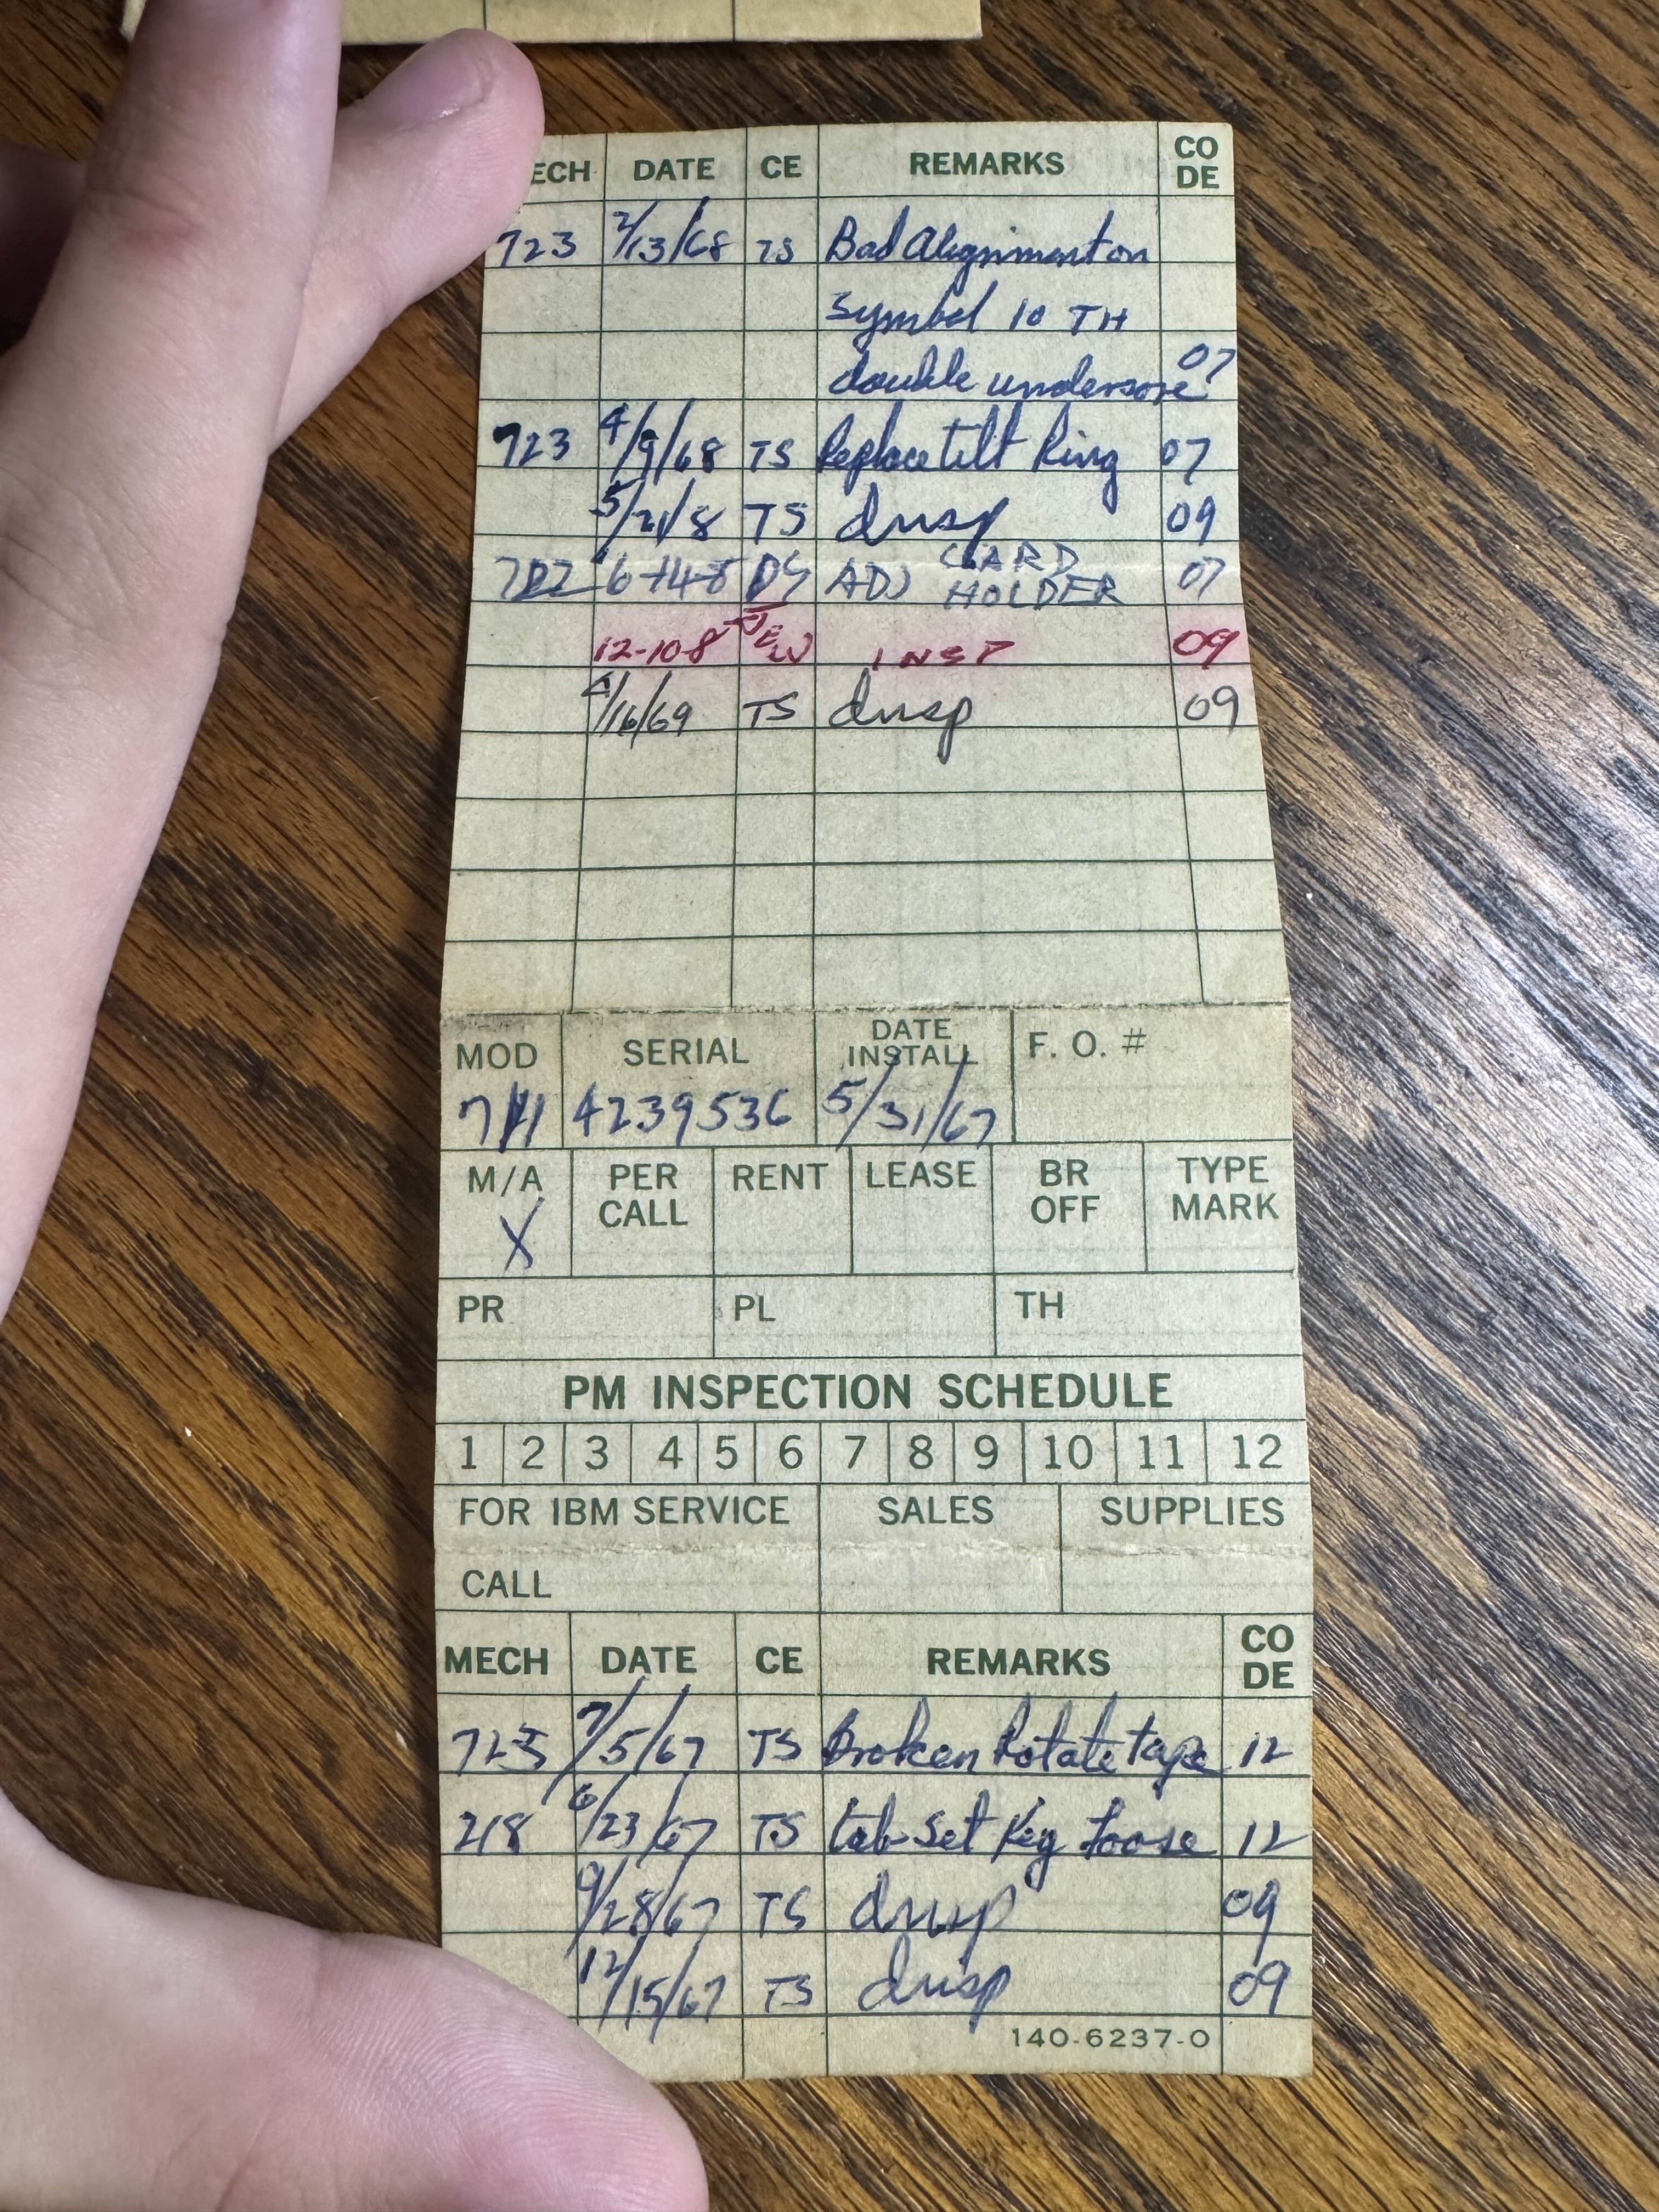 ECH DATE CE REMARKS CO DE
723 2/13/68 TS Bad Alignment on
Symbol 10 TH
double undersore 07
723 4/9/68 TS Replace tilt Ring 07
5/21/8 TS dnsp 09
6-14-8 DS ADJ CARD HOLDER 07
12-10-8 JEW INSP 09
4/16/69 TS dnsp 09
MOD SERIAL DATE INSTALL F. O. #
4239536 5/31/67
M/A PER CALL RENT LEASE BR OFF TYPE MARK
X
PR PL TH
PM INSPECTION SCHEDULE
1 2 3 4 5 6 7 8 9 10 11 12
FOR IBM SERVICE SALES SUPPLIES
CALL
MECH DATE CE REMARKS CO DE
723 7/5/67 TS Broken Rotate tape 12
218 6/23/67 TS tab set Key Loose 12
9/28/67 TS dnsp 09
12/15/67 TS dnsp 09
140-6237-0